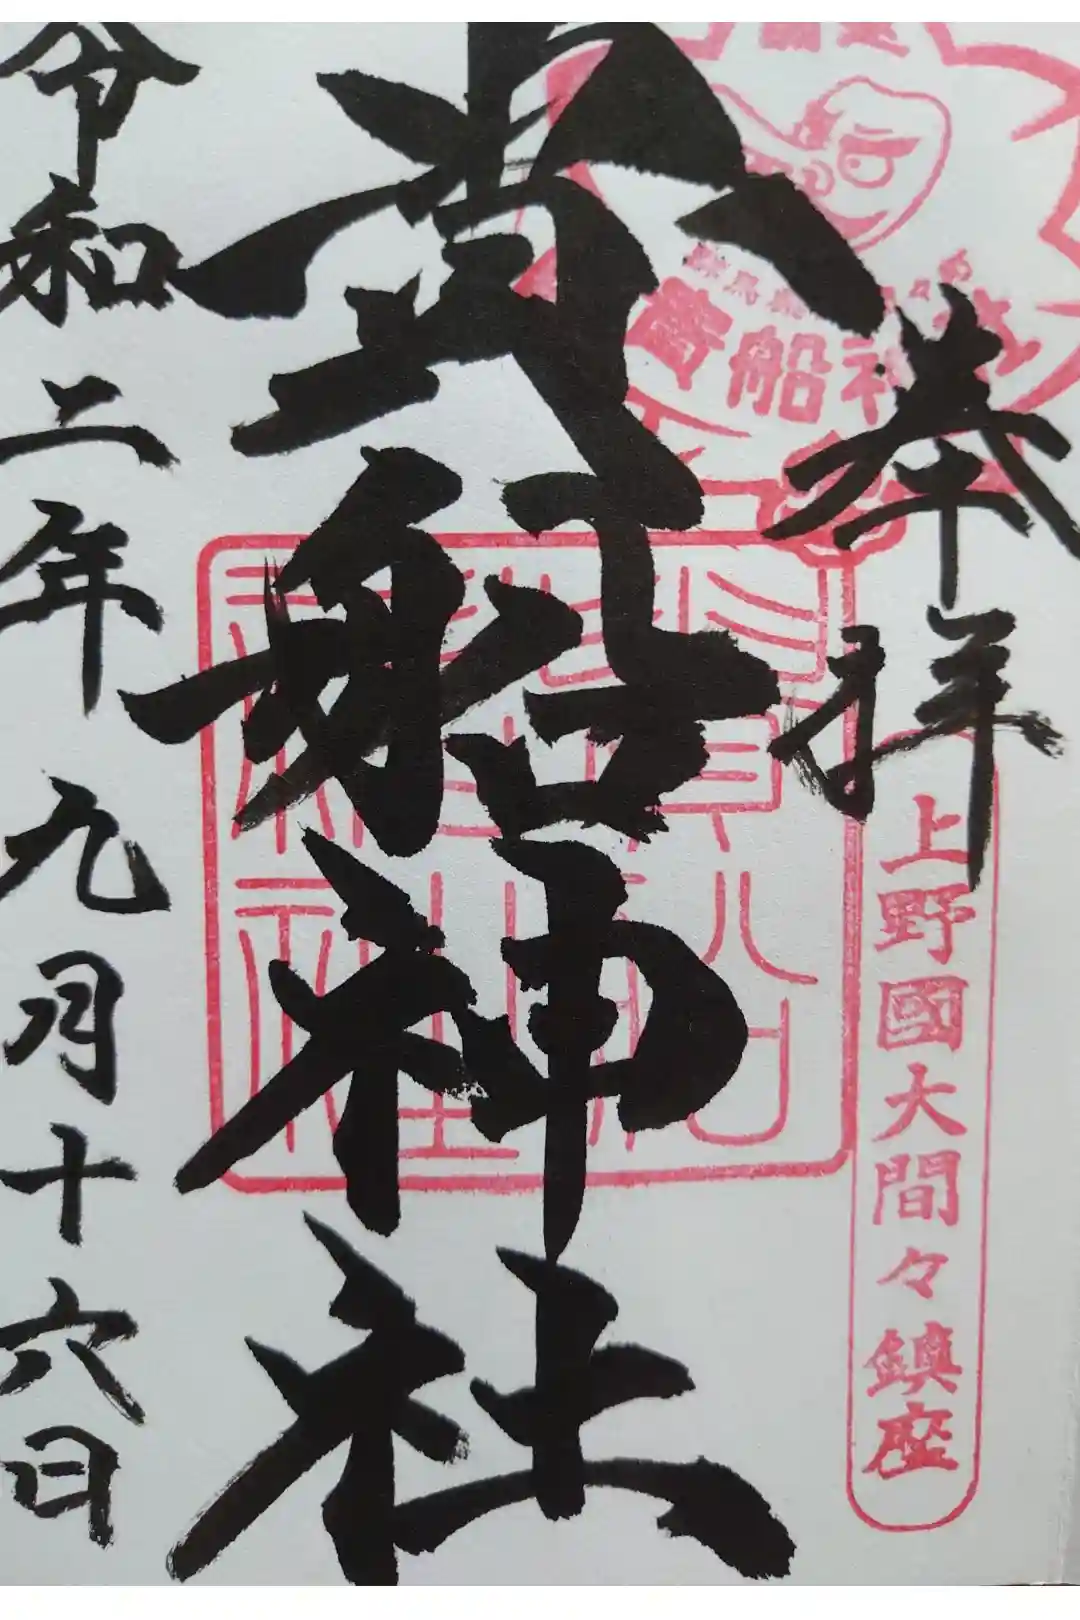 奉拝
上野國大間々鎮座
貴船神社
貴船神社
令和二年九月十六日